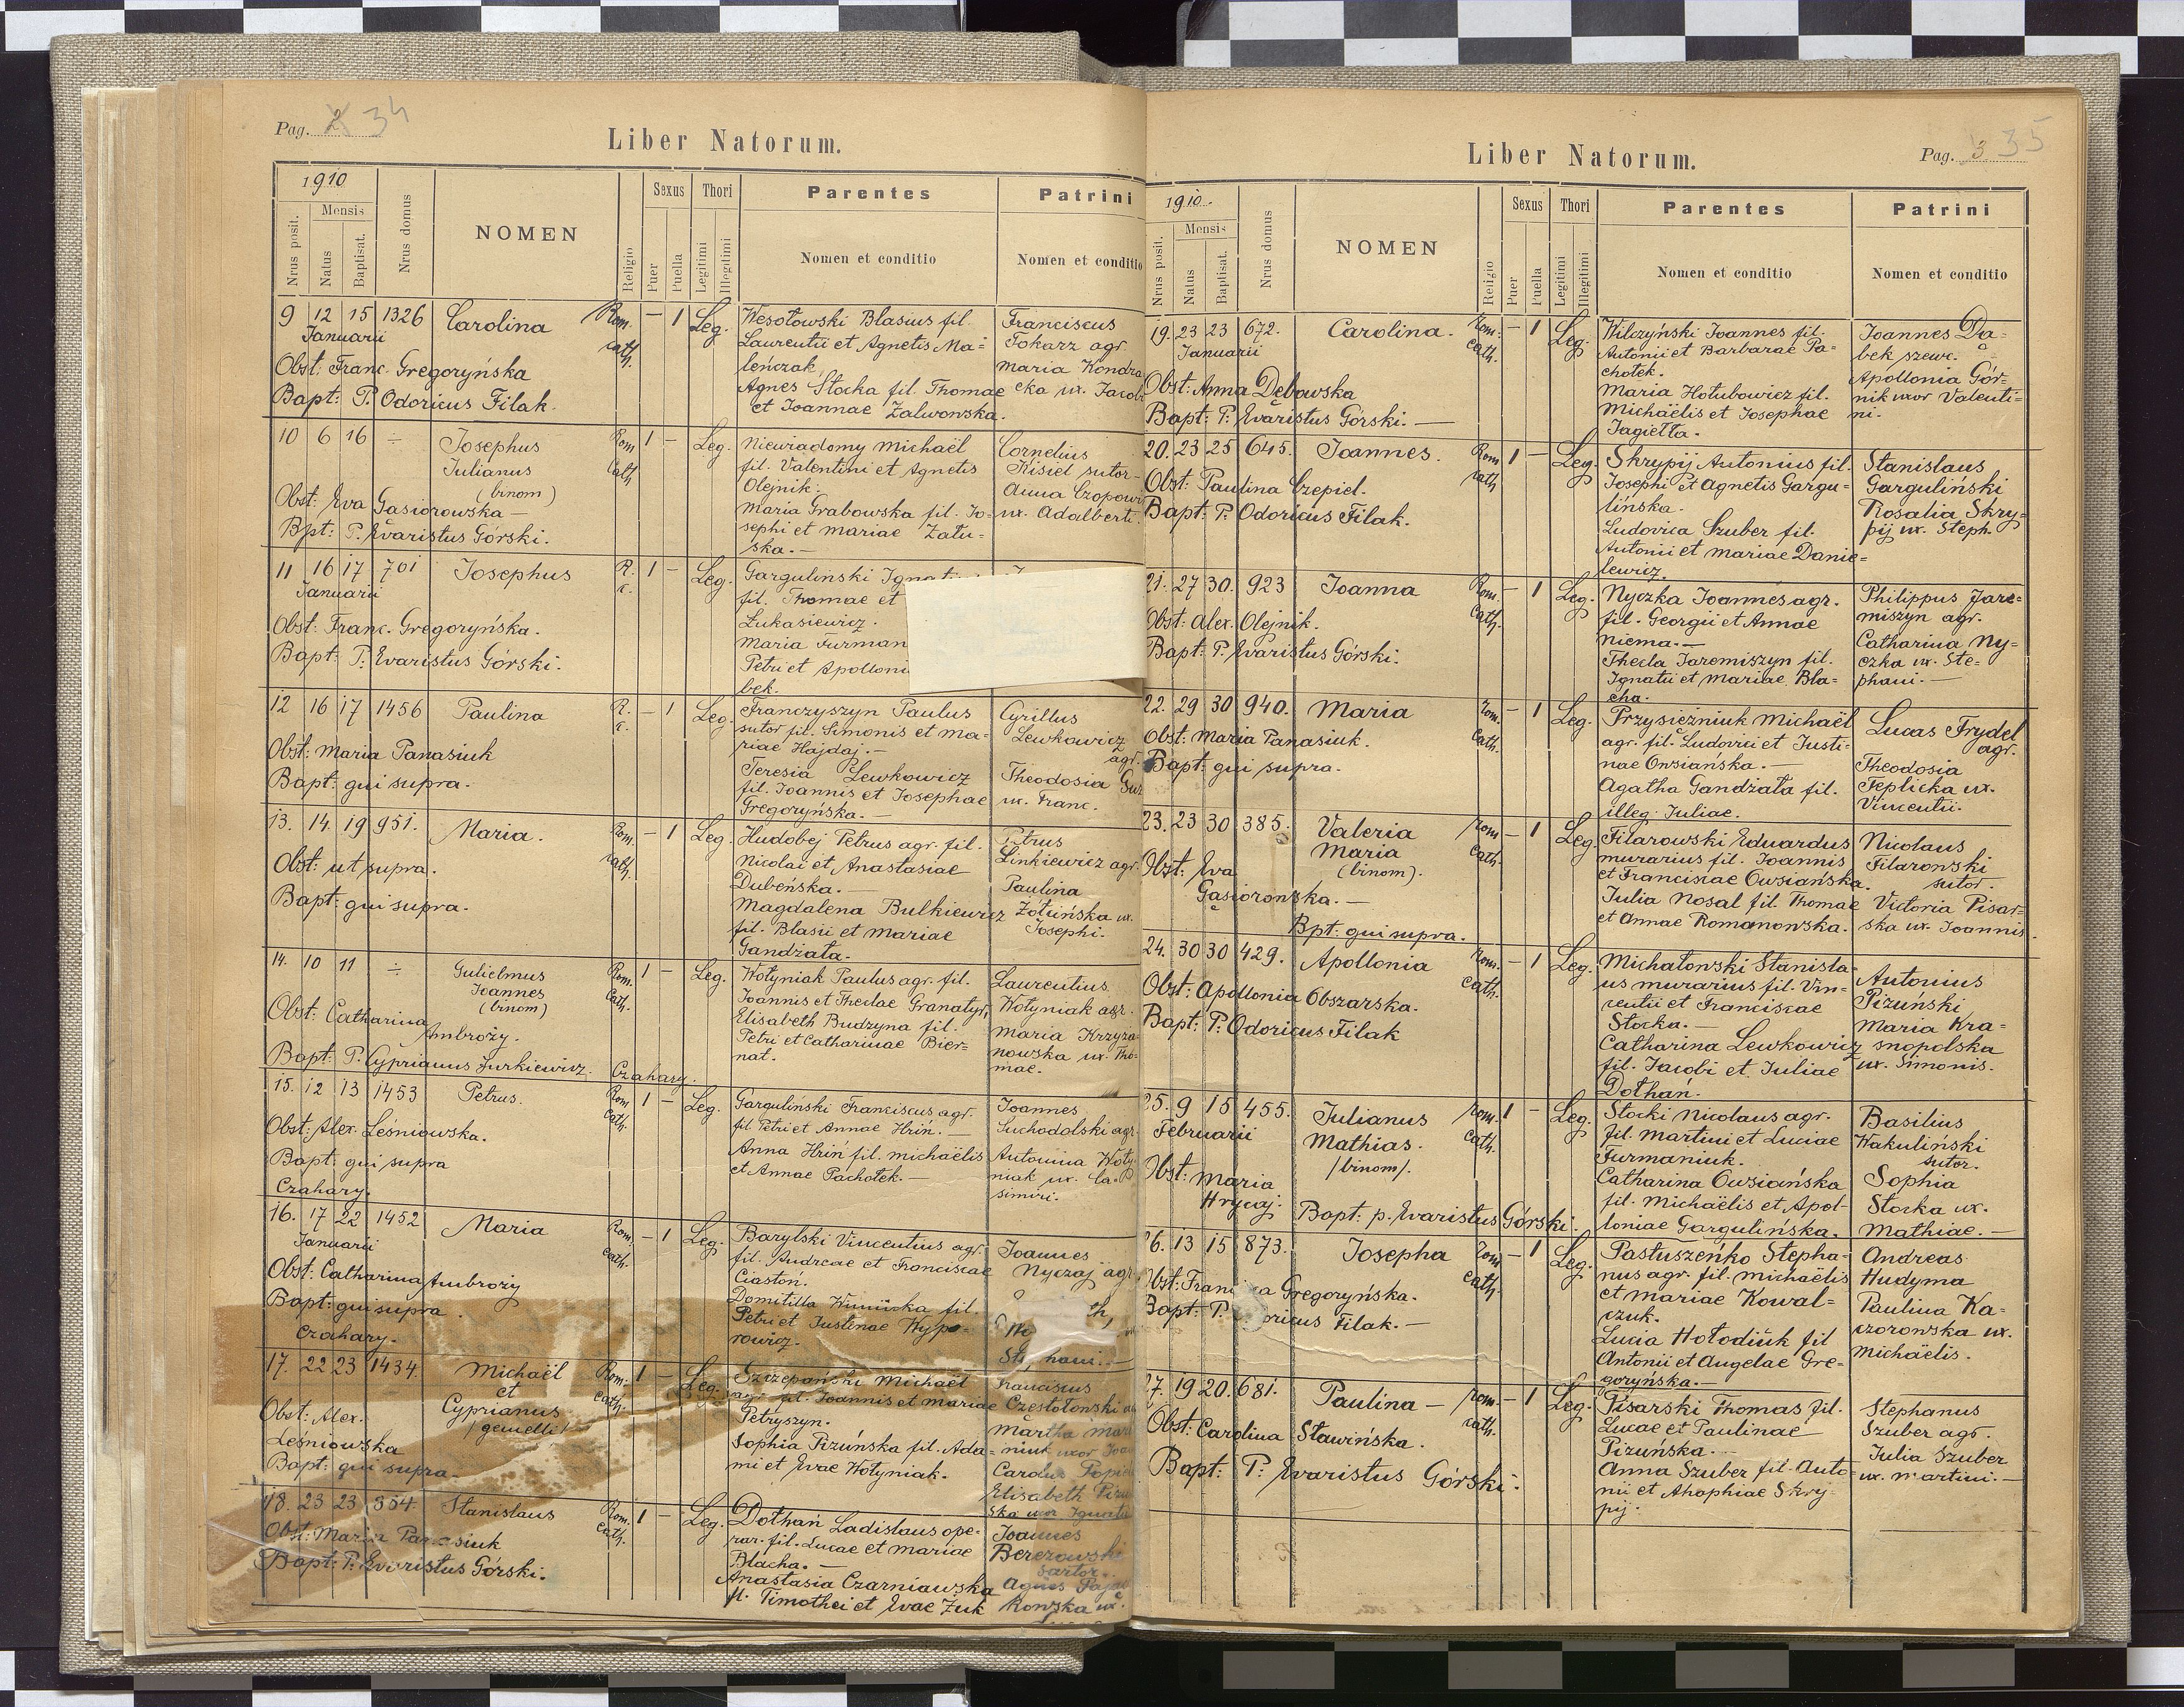 Pag. 2 34
Liber Natorum.
1910
Nrus posit.
Mensis
Natus
Baptisat.
Nrus domus
NOMEN
Religio
Sexus
Puer
Puella
Thori
Legitimi
Illegitimi
Parentes
Nomen et conditio
Patrini
Nomen et conditio
9 12 15 1326 Carolina Rom. cath. - 1 Leg.
Januarii
Obst: Franc. Gregoryńska
Bapt: P. Odoricus Filak.
Wesołowski Blasius fil.
Laurentii et Agnetis Ma=
leńczak
Agnes Stocka fil. Thomae
et Joannae Zalwonska.
Franciscus
Tokarz agr.
Maria Kondra
cka ux. Jacobi
10 6 16 ÷ Josephus Rom Cath 1 - Leg.
Julianus
(binom)
Obst: Eva Gąsiorowska -
Bpt: P. Evaristus Górski.
Niewiadomy Michaël
fil. Valentini et Agnetis
Olejnik.
Maria Grabowska fil. Jo=
sephi et Mariae Zału=
ska. -
Cornelius
Kisiel sutor
Anna Czopowi
ux. Adalberti.
11 16 17 701 Josephus R. c. 1 - Leg.
Januarii
Obst: Franc. Gregoryńska.
Bapt: P. Evaristus Górski.
Garguliński
fil. Thomae et
Łukasiewicz.
Maria Furman
Petri et Apolloni
bek.
12 16 17 1456 Paulina R. c. - 1 Leg.
Obst: Maria Panasiuk
Bapt: qui supra.
Franczyszyn Paulus
sutor fil. Simonis et Ma=
riae Hajdaj. -
Teresia Lewkowicz
fil. Joannis et Josephae
Gregoryńska. -
Cyrillus
Lewkowicz
agr.
Theodosia
ux. Franc.
13. 14. 19 951. Maria. Rom. cath. - 1 Leg.
Obst: ut supra.
Bapt: qui supra.
Hudobej Petrus agr. fil.
Nicolai et Anastasiae
Dubeńska. -
Magdalena Bulkiewicz
fil. Blasii et Mariae
Gandzata.
Petrus
Linkiewicz agr.
Paulina
Żółcińska ux.
Josephi.
14. 10 11 ÷ Gulielmus Rom. Cath. 1 - Leg.
Joannes
(binom)
Obst: Catharina
Ambroży.
Bapt: P. Cyprianus Jurkiewicz. Czahary.
Wołyniak Paulus agr. fil.
Joannis et Theclae Granatyr,
Elisabeth Budzyna fil.
Petri et Catharinae Bier=
nat.
Laurentius
Wołyniak agr.
Maria Krzyża
nowska ux. Tho=
mae.
15. 12 13 1453 Petrus. Rom Cath. 1 - Leg.
Obst: Alex. Leśniowska.
Bapt: qui supra
Czahary.
Garguliński Franciscus agr.
fil Petri et Annae Hriń. -
Anna Hriń fil. Michaëlis
et Annae Pachołek. -
Joannes
Suchodolski agr.
Antonina Woły
niak ux. Ca=
simiri.
16. 17 22 1452 Maria Rom. cath. - 1 Leg.
Januarii
Obst: Catharina Ambroży
Bapt: qui supra.
Czahary.
Barylski Vincentius agr.
fil. Andreae et Franciscae
Ciastoń.
Domitilla Winnicka fil.
Petri et Justinae Wypo=
rowicz.
Joannes
Nyczaj agr
17. 22 23 1434. Michaël Rom. Cath. 1 - Leg.
et
Cyprianus
/gemelli/
Obst: Alex.
Leśniowska
Bapt: qui supra.
Szczepański Michaël
agr. fil. Joannis et Mariae
Petryszyn.
Sophia Pizuńska fil. Ada=
mi et Evae Wołyniak.
Franciscus
Częstołowski
Martha
niuk uxor
Carolus
Elisabeth
ska uxor
18. 23 23 854 Stanislaus Rom. Cath. 1 - Leg.
Obst: Maria Panasiuk
Bapt: P. Evaristus Górski.
Dothań Ladislaus ope=
rar. fil. Lucae et Mariae
Blacha. -
Anastasia Czarniawska
fil. Timothei et Evae Żuk
Joannes
Berezowski
sartor.
Agnes
kowska ux.
Pag. 3 35
Liber Natorum.
1910.
Nrus posit.
Mensis
Natus
Baptisat.
Nrus domus
NOMEN
Religio
Sexus
Puer
Puella
Thori
Legitimi
Illegitimi
Parentes
Nomen et conditio
Patrini
Nomen et conditio
19. 23 23 672. Carolina. Rom. Cath. - 1 Leg.
Januarii
Obst: Anna Dębowska
Bapt: P. Evaristus Górski. -
Wilczyński Joannes fil.
Antonii et Barbarae Pa=
chołek.
Maria Hołubowicz fil.
Michaëlis et Josephae
Jagiełła.
Joannes Dą=
bek szewc.
Apollonia Gór=
nik uxor Valenti=
ni.
20. 23 25 645. Joannes. Rom cath 1 - Leg.
Obst: Paulina Czepiel.
Bapt: P. Odoricus Filak.
Skrypij Antonius fil.
Josephi et Agnetis Gargu=
lińska.
Ludovica Szuber fil.
Antonii et Mariae Danie=
lewicz.
Stanislaus
Garguliński
Rosalia Skry=
pij ux. Steph.
21. 27 30. 923 Joanna Rom. Cath. - 1 Leg.
Obst: Alex. Olejnik.
Bapt: P. Evaristus Górski.
Nyczka Joannes agr.
fil. Georgii et Annae
Niema. -
Thecla Jaremiszyn fil.
Ignatii et Mariae Bla=
cha.
Philippus Jare=
miszyn agr.
Catharina Ny=
czka ux. Ste=
phani. -
22. 29 30 940. Maria Rom. Cath. - 1 Leg.
Obst: Maria Panasiuk.
Bapt: qui supra.
Przysiężniuk Michaël
agr. fil. Ludovici et Justi=
nae Owsiańska. -
Agatha Gandzata fil.
illeg. Juliae.
Lucas Frydel
agr.
Theodosia
Teplicka ux.
Vincentii.
23. 23 30 385. Valeria Rom Cath. - 1 Leg
Maria
(binom).
Obst: Eva
Gąsiorowska. -
Bpt: qui supra.
Filarowski Eduardus
murarius fil. Joannis
et Franciscae Owsiańska.
Julia Nosal fil Thomae
et Annae Romanowska.
Nicolaus
Filarowski
sutor.
Victoria Pisar=
ska ux. Joannis.
24. 30 30 429. Apollonia Rom. Cath. - 1 Leg.
Obst: Apollonia Obszarska.
Bapt: P. Odoricus Filak
Michałowski Stanisla=
us murarius fil. Vin=
centii et Franciscae
Stocka. -
Catharina Lewkowicz
fil. Jacobi et Juliae
Dothań.
Antonius
Pizuński
Maria Kra=
snopolska
ux. Simonis.
25. 9 15 455. Julianus Rom. Cath. 1 - Leg.
Februarii
Mathias.
/binom/.
Obst: Maria
Hrycaj.
Bapt: p. Evaristus Górski.
Stocki Nicolaus agr.
fil. Martini et Luciae
Furmaniuk.
Catharina Owsiańska
fil. Michaëlis et Apol=
loniae Gargulińska.
Basilius
Wakuliński
sutor.
Sophia
Stocka ux.
Mathiae. -
26. 13 15 873. Josepha Rom Cath. - 1 Leg.
Obst: Gregoryńska.
Bapt: P. Filak. -
Pastuszeńko Stepha=
nus agr. fil. Michaëlis
et Mariae Kowal=
czuk.
Lucia Hołodiuk fil
Antonii et Angelae Gre=
goryńska. -
Andreas
Hudyma
Paulina Ka=
czorowska ux.
Michaëlis.
27. 19 20. 681. Paulina - Rom. cath. - 1 Leg.
Obst: Carolina Sławińska.
Bapt: P. Evaristus Górski.
Pisarski Thomas fil.
Lucae et Paulinae
Pizuńska. -
Anna Szuber fil. Anto=
nii et Ahaphiae Skry=
pij.
Stephanus
Szuber agr.
Julia Szuber
ux. Martini. -